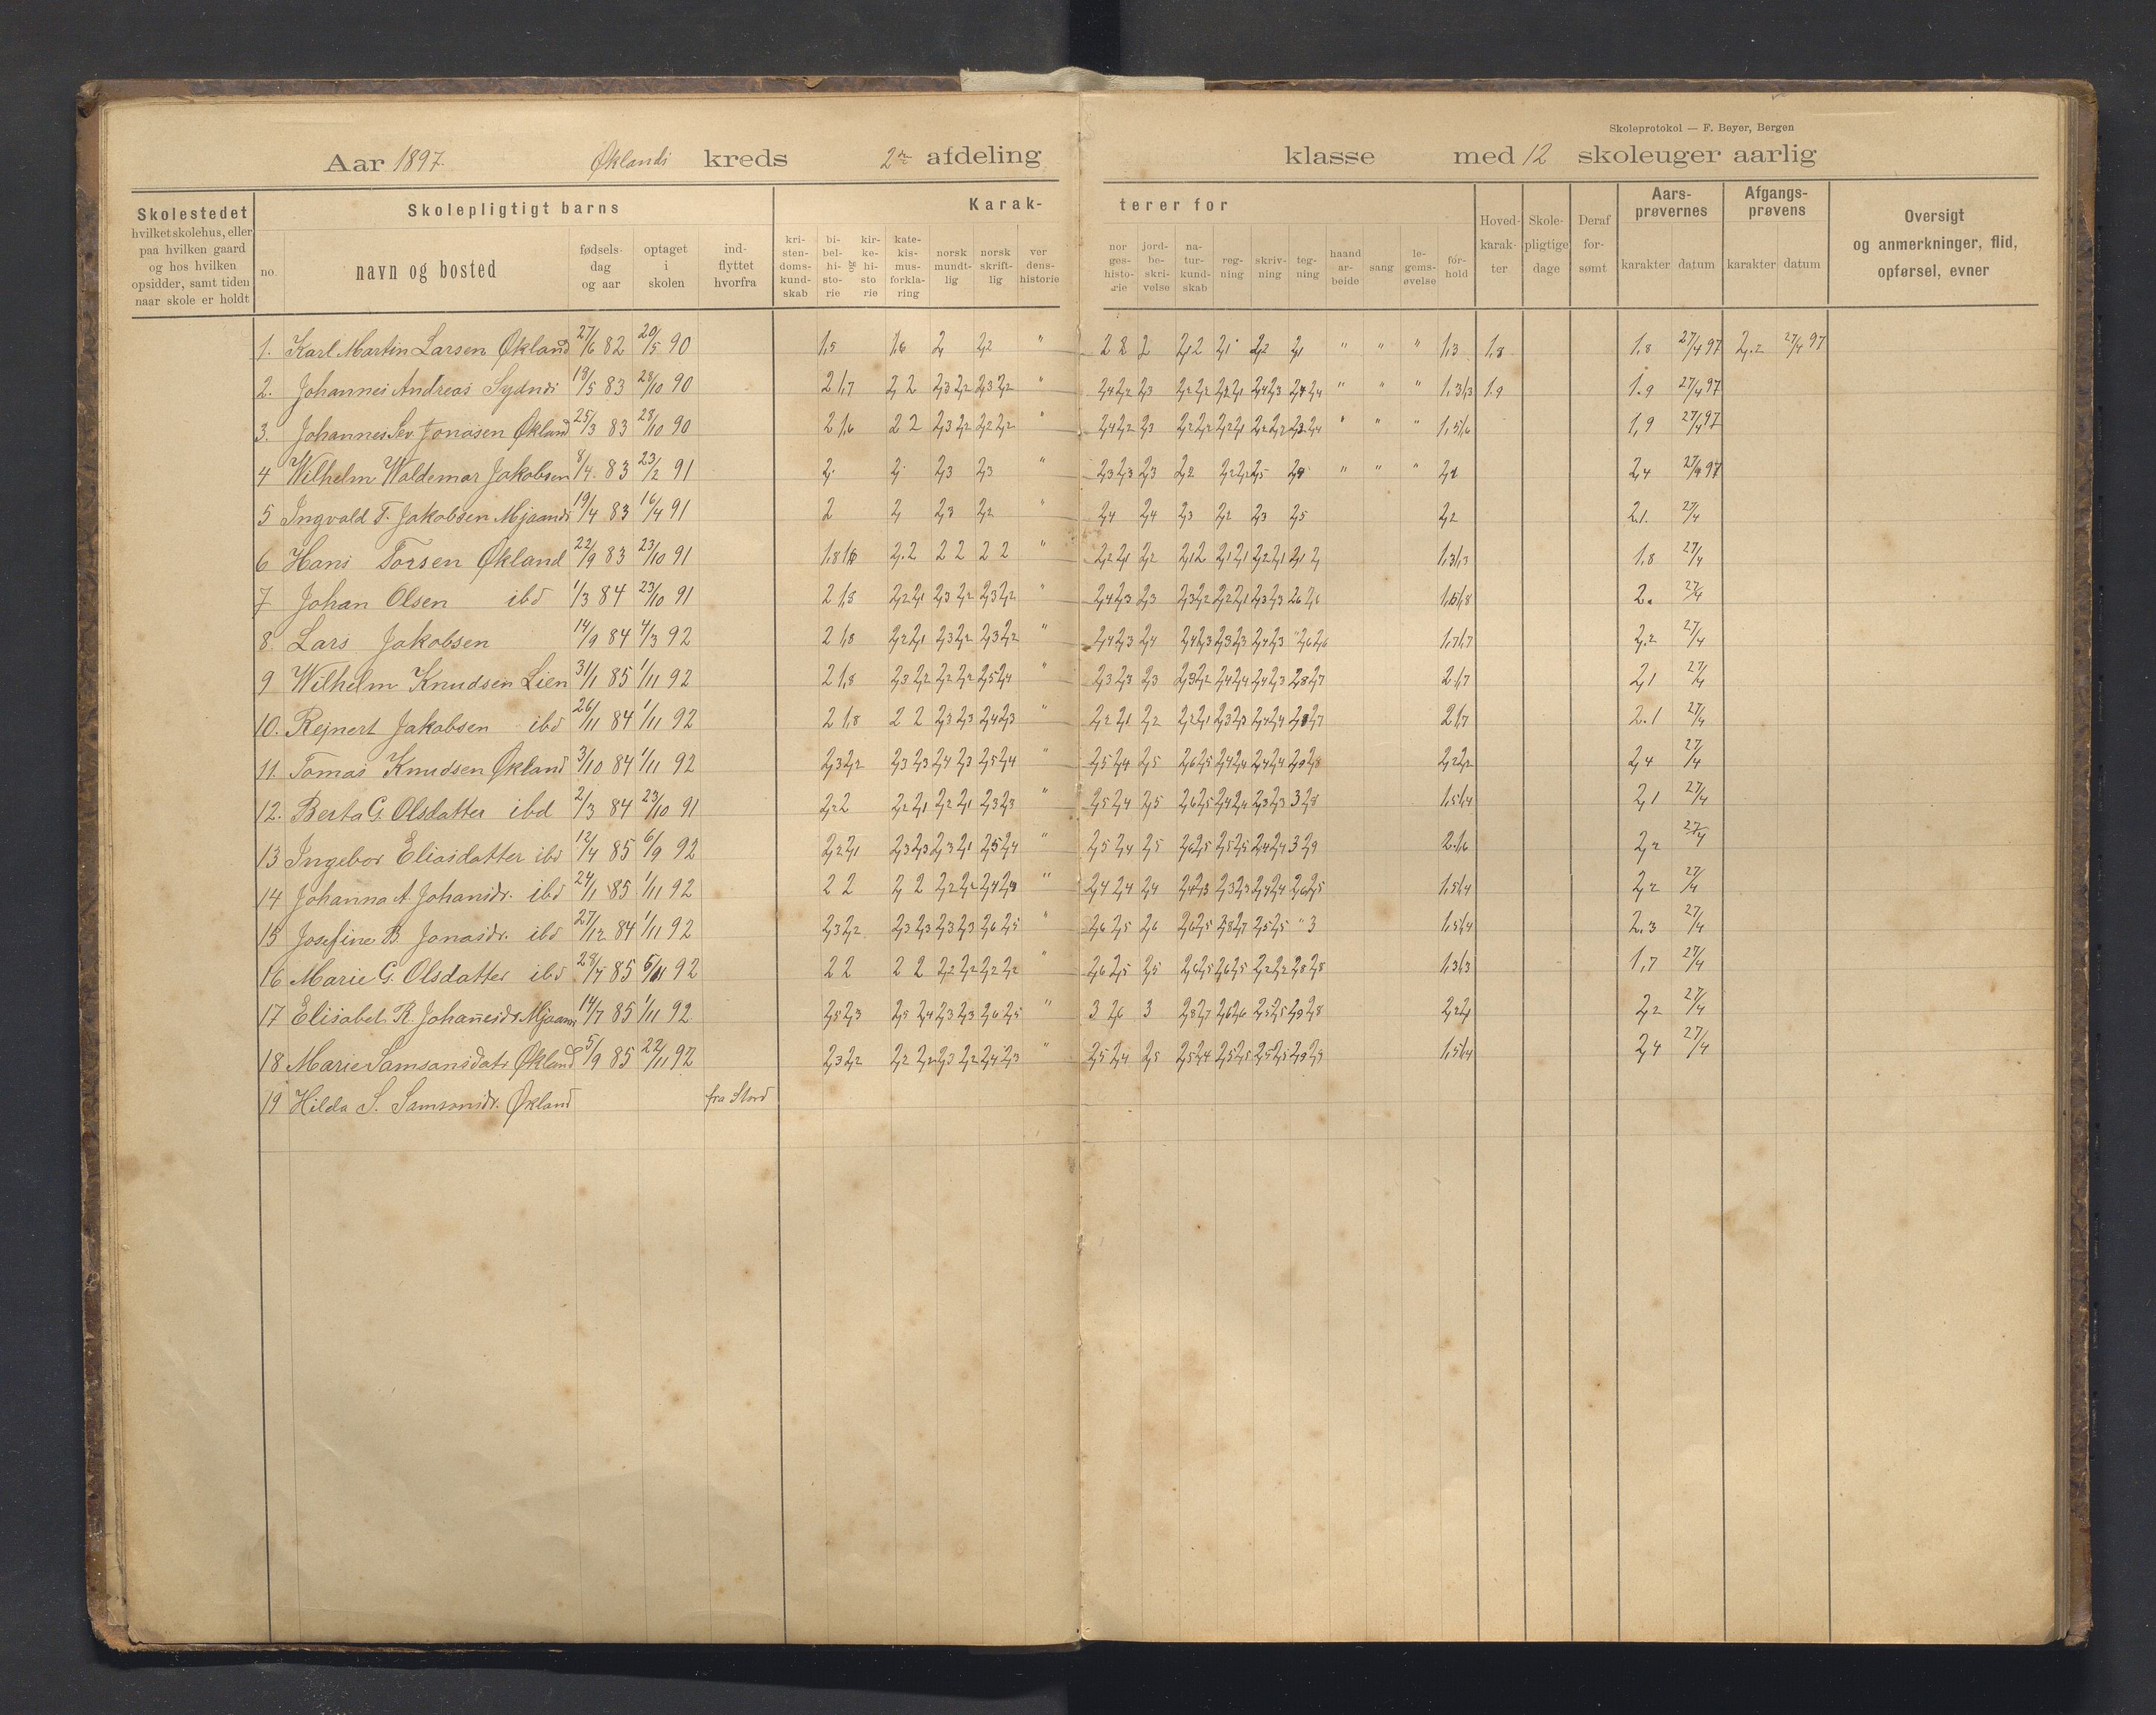 Skoleprotokol — F. Beyer, Bergen
Aar 1897. Øklands kreds 2den afdeling klasse med 12 skoleuger aarlig
Skolestedet
hvilket skolehus, eller
paa hvilken gaard
og hos hvilken
opsidder, samt tiden
naar skole er holdt
Skolepligtigt barns
no.
navn og bosted
fødsels-
dag
og aar
optaget
i
skolen
ind-
flyttet
hvorfra
Karak-
terer for
kri-
sten-
doms-
kund-
skab
bi-
bel-
hi-
sto-
rie
kir-
ke-
hi-
sto
rie
kate-
kis-
mus-
forkla-
ring
norsk
mundt-
lig
norsk
skrift-
lig
ver
dens-
historie
nor
ges-
histo-
rie
jord-
be-
skri-
velse
na-
tur-
kund-
skab
reg-
ning
skriv-
ning
teg-
ning
haand
ar-
beide
sang
le-
gems-
øvelse
for-
hold
Hoved-
karak-
ter
Skole-
pligtige
dage
Deraf
for-
sømt
Aars-
prøvernes
karakter datum
Afgangs-
prøvens
karakter datum
Oversigt
og anmerkninger, flid,
opførsel, evner
1. Karl Martin Larsen Økland 27/6 82 20/5 90 1,5 1,6 2, 2,2 " 2 2 2 2,2 2 2,1 2,2 2,1 " " " 1,3 1,8 1,8 27/4 97 2,2 27/4 97
2. Johannes Andreas Sydnes 18/5 83 28/10 90 2 1,7 2, 2 2,3 2,2 2,3 2,2 " 2,4 2,2 2,3 2,2 2,2 2,2 2,1 2,4 2,3 2,4 2,4 " " " 1,3 1,3 1.9 1.9 27/4 97
3. Johannes Sev. Jonasen Økland 25/3 83 28/10 90 2 1,6 2 2 2,3 2,2 2,2 2,2 " 2,4 2,2 2,3 2,2 2,2 2,2 2,1 " " " 1,5 1,6 1,9 27/4 97
4 Wilhelm Waldemar Jakobsen 8/4. 83 23/2 91 2, 2, 2,3 2,3 " 2,3 2,3 2,3 2,2 " " " 2,4 27/4 97
5 Ingvald T. Jakobsen Mjaanes 19/4 83 16/4 91 2 2, 2,3 2,2 " 2,4 2,4 2,3 2,2 2,3 2,5 2,2 2.1. 27/4
6 Hans Torsen Økland 22/9 83 23/10 91 1,8 1,6 2. 2 2 2 2 2 " 2,2 2,1 2,2 2,1 2 2,1 2,1 2,2 2,1 2,1 2, 1,3 1,3 1,8 27/4
7 Johan Olsen ibd 1/3 84 23/10 91 2 1,8 2,2 2,1 2,3 2,2 2,3 2,2 " 2,4 2,3 2,3 2,3 2,2 2,2 2,1 2,3 2,3 2,6 2,6 1,6 1,8 2. 27/4
8. Lars Jakobsen 14/9 84 4/3 92 2 1,8 2,2 2,1 2,3 2,2 2,3 2,2 " 2,4 2,3 2,4 2,4 2,3 2,3 2,3 2,4 2,3 " 2,6 2,6 1,7 1,7 2,2 27/4
9 Wilhelm Knudsen Lien 31/1 85 1/11 92 2 1,8 2,3 2,2 2,2 2,2 2,5 2,4 " 2,3 2,3 2,3 2,3 2,2 2,4 2,4 2,4 2,3 2,8 2,7 2 1,7 2,1 27/4
10. Rejnert Jakobsen ibd 26/11 84 1/11 92 2 1,8 2 2 2,3 2,3 2,4 2,3 " 2,2 2,1 2,2 2,2 2,1 2,3 2,3 2,4 2,4 2,8 2,7 2 1,7 2.1 27/4
11. Tomas Knudsen Økland 3/10 84 1/11 92 2,3 2,2 2,3 2,3 2,4 2,3 2,5 2,4 " 2,5 2,4 2,5 2,6 2,5 2,4 2,4 2,4 2,4 2,9 2,8 2,2 2,2 2,4 27/4
12. Berta G. Olsdatter ibd 2/3 84 23/10 91 2,2 2 2,2 2,1 2,2 2,1 2,3 2,3 " 2,5 2,4 2,5 2,6 2,5 2,4 2,4 2,3 2,3 3 2,8 1,5 1,4 2,1 27/4
13 Ingebor Eliasdatter ibd 12/4 85 6/9 92 2,2 2,1 2,3 2,3 2,3 2,1 2,5 2,4 " 2,5 2,4 2,5 2,6 2,5 2,5 2,5 2,4 2,4 3 2,9 2. 1,6 2,2 27/4
14 Johanna A. Johansdr. ibd 24/1 85 1/11 92 2 2 2, 2 2,2 2,2 2,4 2,3 " 2,4 2,4 2,4 2,4 2,3 2,3 2,3 2,4 2,4 2,6 2,5 1,5 1,4 2,2 27/4
15 Josefine B. Jonasdr. ibd 27/12 84 1/11 92 2,3 2,2 2,3 2,3 2,3 2,3 2,6 2,5 " 2,6 2,5 2,6 2,6 2,5 2,8 2,7 2,5 2,5 " 3 1,5 1,4 2.3 27/4
16 Marie G. Olsdatter ibd 28/7 85 92 2 2 2 2 2,2 2,2 2,2 2,2 " 2,6 2,5 2,5 2,6 2,5 2,6 2,5 2,2 2,2 2,8 2,8 1,3 1,3 1,7 27/4
17 Elisabet R. Johannesdr Mjaanes 14/7 85 1/11 92 2,5 2,3 2,5 2,4 2,3 2,3 2,6 2,5 " 3 2,6 3 2,8 2,7 2,6 2,6 2,5 2,5 2,9 2,8 2,2 2,1 2,2 27/4
18 Marie Samsonsdatr Økland 5/9 85 22/11 92 2,3 2,2 2,2 2,2 2,3 2,2 2,4 2,3 " 2,5 2,4 2,5 2,5 2,4 2,5 2,5 2,5 2,5 1,5 1,4 2,4 27/4
19 Hilda S. Samsonsdr. Økland fra Stord